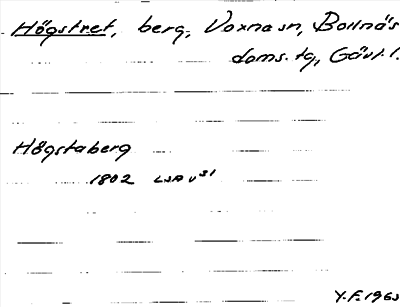 Högstret, berg, Voxna sn, Bollnäs
doms. tg, Gävl. l.
Högstaberg
1802 LSA v31
Y.F. 1963